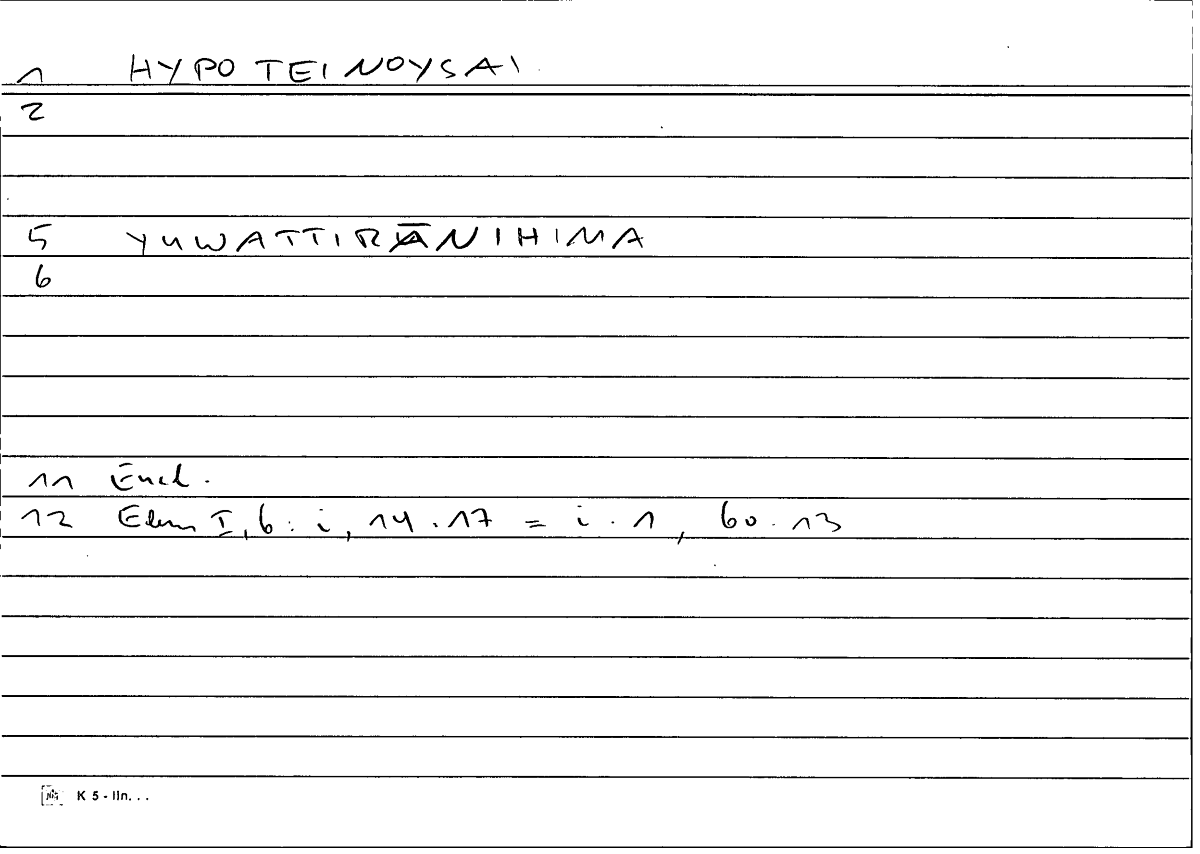 1 HYPOTEINOYSAI
2
5 YUWATTIRĀNIHIMA
6
11 Eucl.
12 Elem I, 6 : i, 14.17 = i.1, 60.13
K 5 - lln. . .